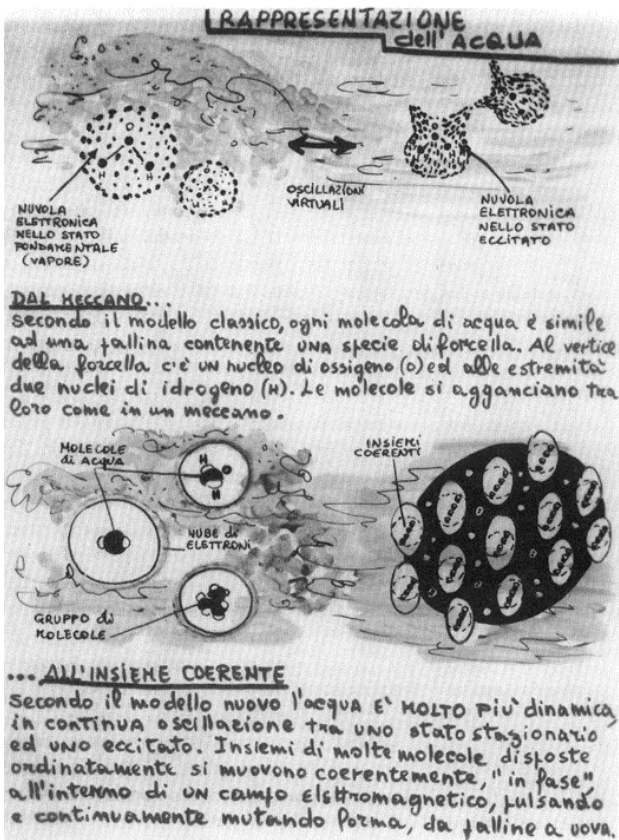 RAPPRESENTAZIONE
dell'ACQUA
O
H H
NUVOLA
ELETTRONICA
NELLO STATO
FONDAMENTALE
(VAPORE)
OSCILLAZIONI
VIRTUALI
NUVOLA
ELETTRONICA
NELLO STATO
ECCITATO
DAL MECCANO...
secondo il modello classico, ogni molecola di acqua è simile
ad una pallina contenente UNA specie di forcella. Al vertice
della forcella c'è un nucleo di ossigeno (O) ed alle estremità
due nuclei di idrogeno (H). Le molecole si agganciano tra
loro come in un meccano.
MOLECOLE
di ACQUA
H
O
H
NUBE di
ELETTRONI
GRUPPO di
MOLECOLE
INSIEMI
COERENTI
... ALL'INSIEME COERENTE
secondo il modello nuovo l'acqua E' MOLTO PIU' dinamica,
in continua oscillazione tra uno stato stazionario
ed uno eccitato. Insiemi di molte molecole disposte
ordinatamente si muovono coerentemente, "in fase",
all'interno di un campo elettromagnetico, pulsando
e continuamente mutando forma, da palline a uova.